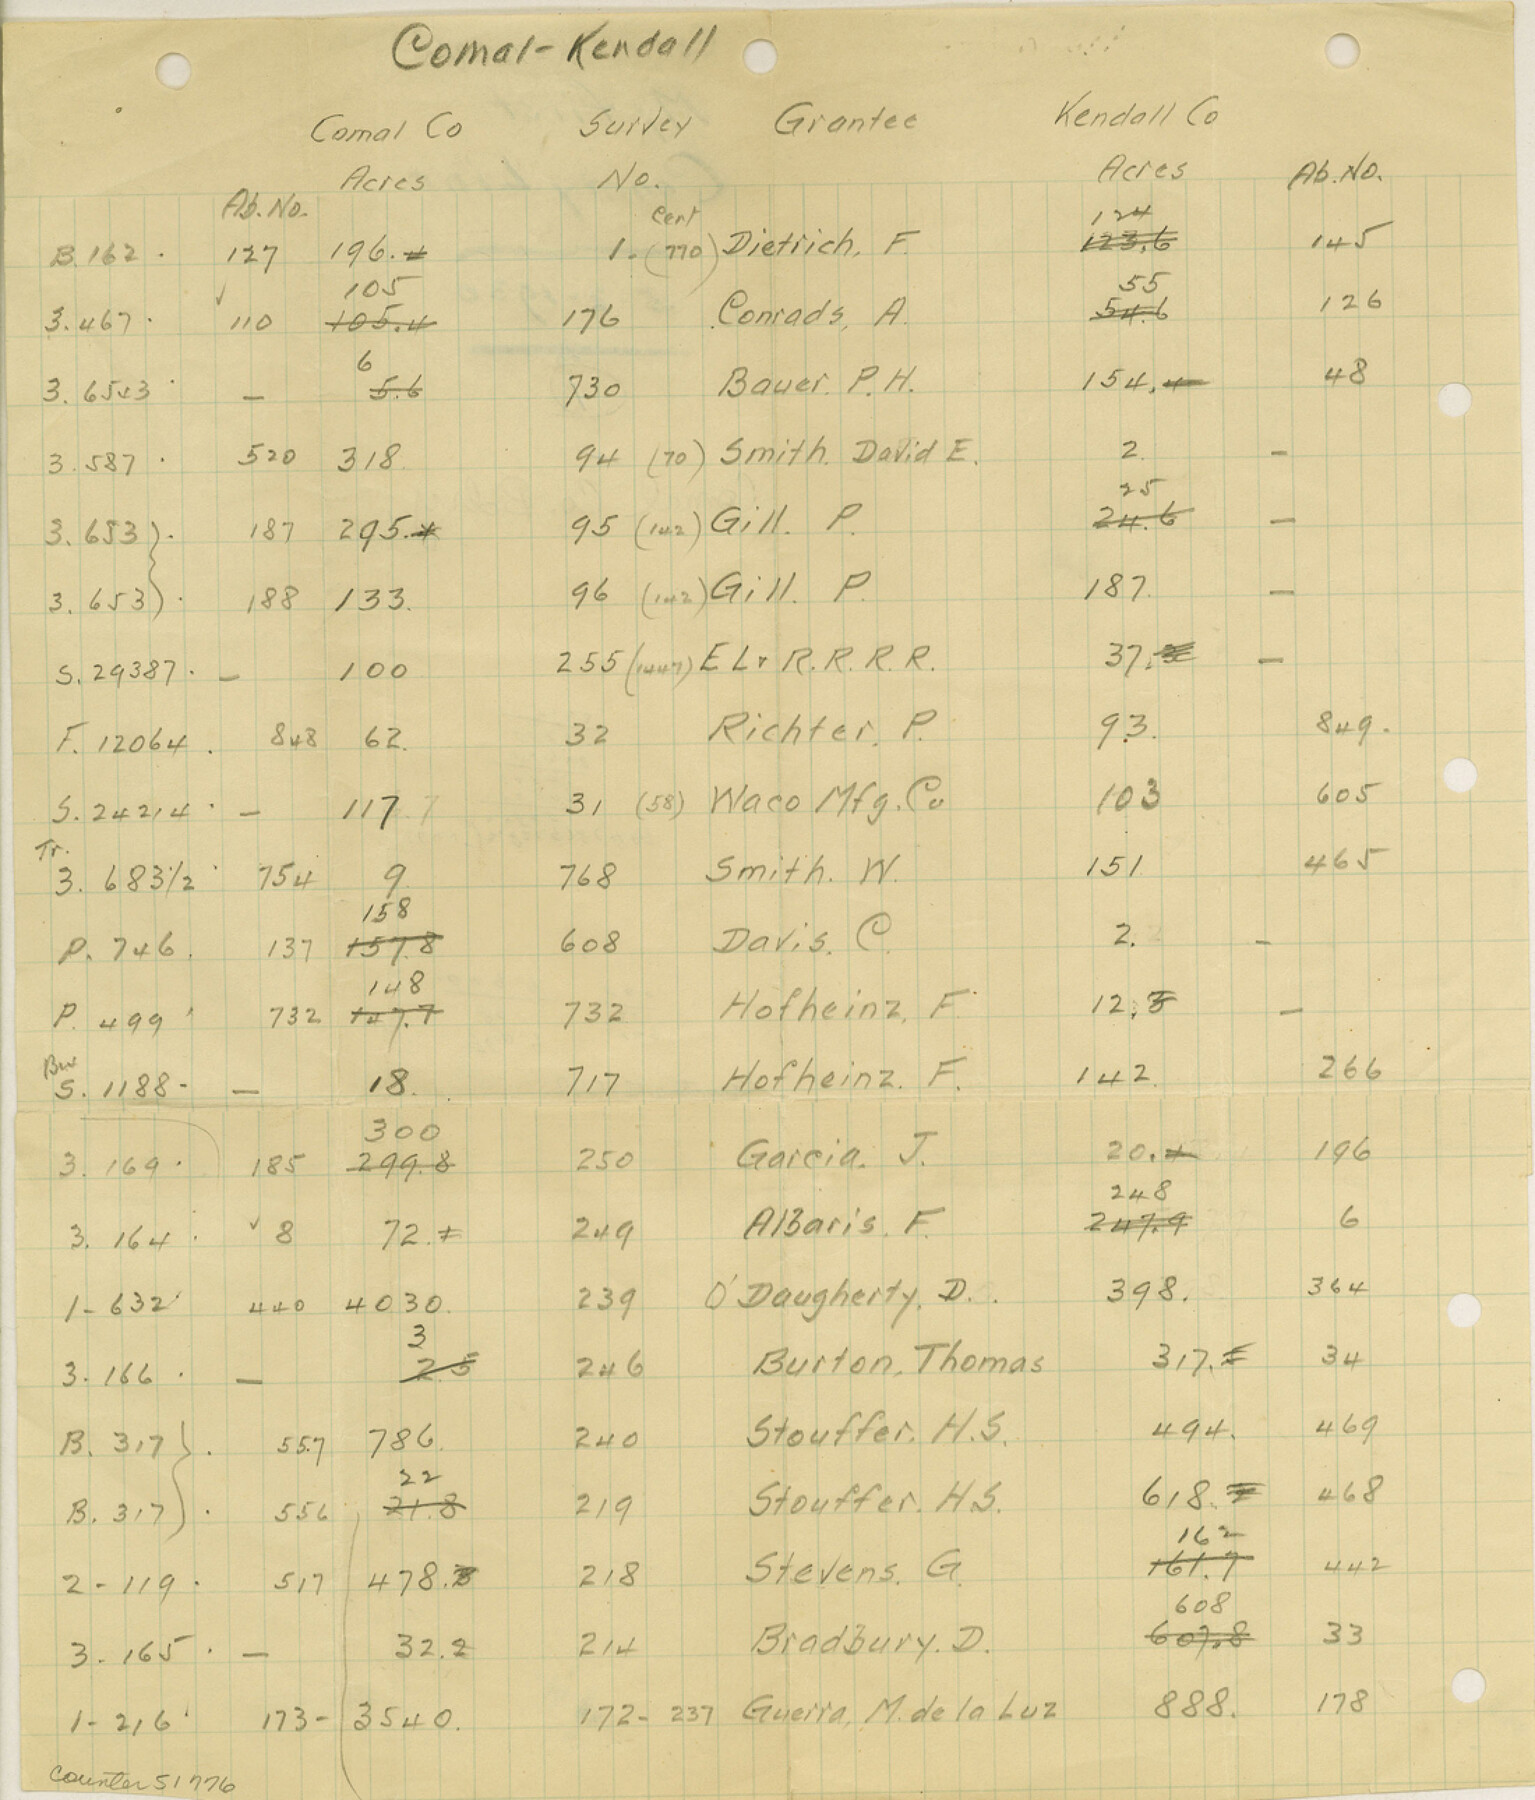 Comal-Kendall
Comal Co Survey Grantee Kendall Co
Ab.No. Acres No. Acres Ab.No.
Cert 124
B.162. 127 196. 1. (770) Dietrich, F. 123.6 145
105 55
3.467. 110 105.4 176 Conrads, A. 54.6 126
6
3.6543. — 5.6 730 Bauer. P.H. 154. 48
3.587. 520 318. 94 (70) Smith. David E. 2. —
25
3.653. 187 295. 95 (142) Gill. P. 24.6 —
3.653. 188 133. 96 (142) Gill. P. 187. —
S.29387. — 100 255 (1447) E L & R.R. R.R. 37. —
F.12064. 848 62. 32 Richter. P. 93. 849.
S.24214. — 117.7 31 (58) Waco Mfg. Co 103 605
Tr.
3.683 1/2. 754 9. 768 Smith. W. 151 465
158
P.746. 137 157.8 608 Davis. C. 2. —
148
P.499 732 147.7 732 Hofheinz, F. 12.3 —
S.1188- — 18. 717 Hofheinz. F. 142. 266
300
3.169. 185 299.8 250 Garcia. J. 20. 196
248
3.164. 8 72. 249 Albaris. F. 247.9 6
1-632 440 4030. 239 O'Daugherty. D. 398. 364
3
3.166. — 2.5 246 Burton, Thomas 317. 34
B.317. 557 786. 240 Stouffer. H.S. 494. 469
22
B.317. 556 21.8 219 Stouffer. H.S. 618. 468
162
2-119. 517 478.3 218 Stevens. G. 161.7 442
608
3-165. — 32.2 214 Bradbury. D. 607.8 33
1-216 173- 3540. 172- 237 Guerra, M. de la Luz 888. 178
counter 51776